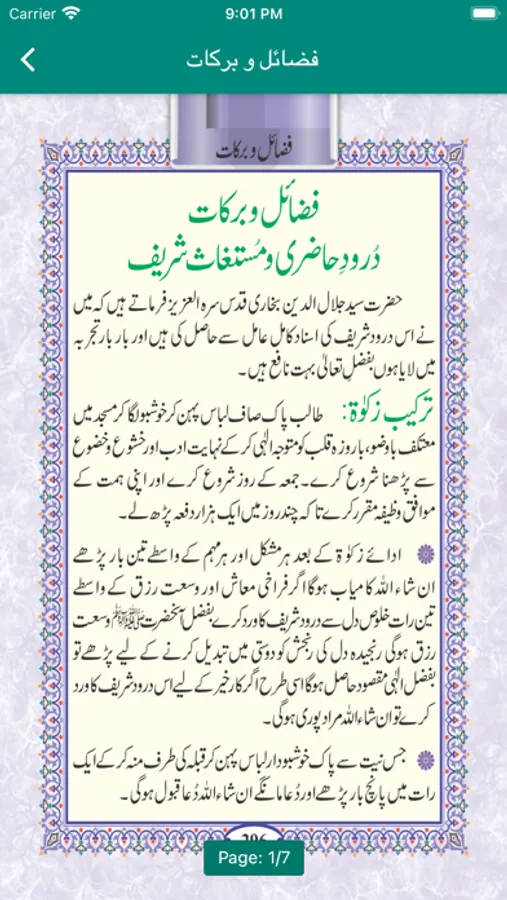 Carrier 9:01 PM
فضائل و برکات
فضائل و برکات
فضائل و برکات
دُرودِ حاضری و مُستغاث شریف
حضرت سید جلال الدین بخاری قدس سرہ العزیز فرماتے ہیں کہ میں
نے اس درود شریف کی اسناد کامل عامل سے حاصل کی ہیں اور بار بار تجربہ
میں لایا ہوں بفضلِ تعالیٰ بہت نافع ہیں۔
ترکیب زکوٰۃ: طالب پاک صاف لباس پہن کر خوشبو لگا کر مسجد میں
معتکف باوضو، باروزہ قلب کو متوجہ الٰہی کر کے نہایت ادب اور خشوع و خضوع
سے پڑھنا شروع کرے۔ جمعہ کے روز شروع کرے اور اپنی ہمت کے
موافق وظیفہ مقرر کرے تاکہ چند روز میں ایک ہزار دفعہ پڑھ لے۔
ادائے زکوٰۃ کے بعد ہر مشکل اور ہر مہم کے واسطے تین بار پڑھے
ان شاء اللہ کامیاب ہوگا اگر فراخی معاش اور وسعت رزق کے واسطے
تین رات خلوص دل سے درود شریف کا ورد کرے بفضل آنحضرت ﷺ وسعت
رزق ہوگی رنجیدہ دل کی رنجش کو دوستی میں تبدیل کرنے کے لیے پڑھے تو
بفضل الٰہی مقصود حاصل ہوگا اسی طرح اگر کار خیر کے لیے اس درود شریف کا ورد
کرے تو ان شاء اللہ مراد پوری ہوگی۔
جس نیت سے پاک خوشبودار لباس پہن کر قبلہ کی طرف منہ کر کے ایک
رات میں پانچ بار پڑھے اور دُعا مانگے ان شاء اللہ دُعا قبول ہوگی۔
Page: 1/7